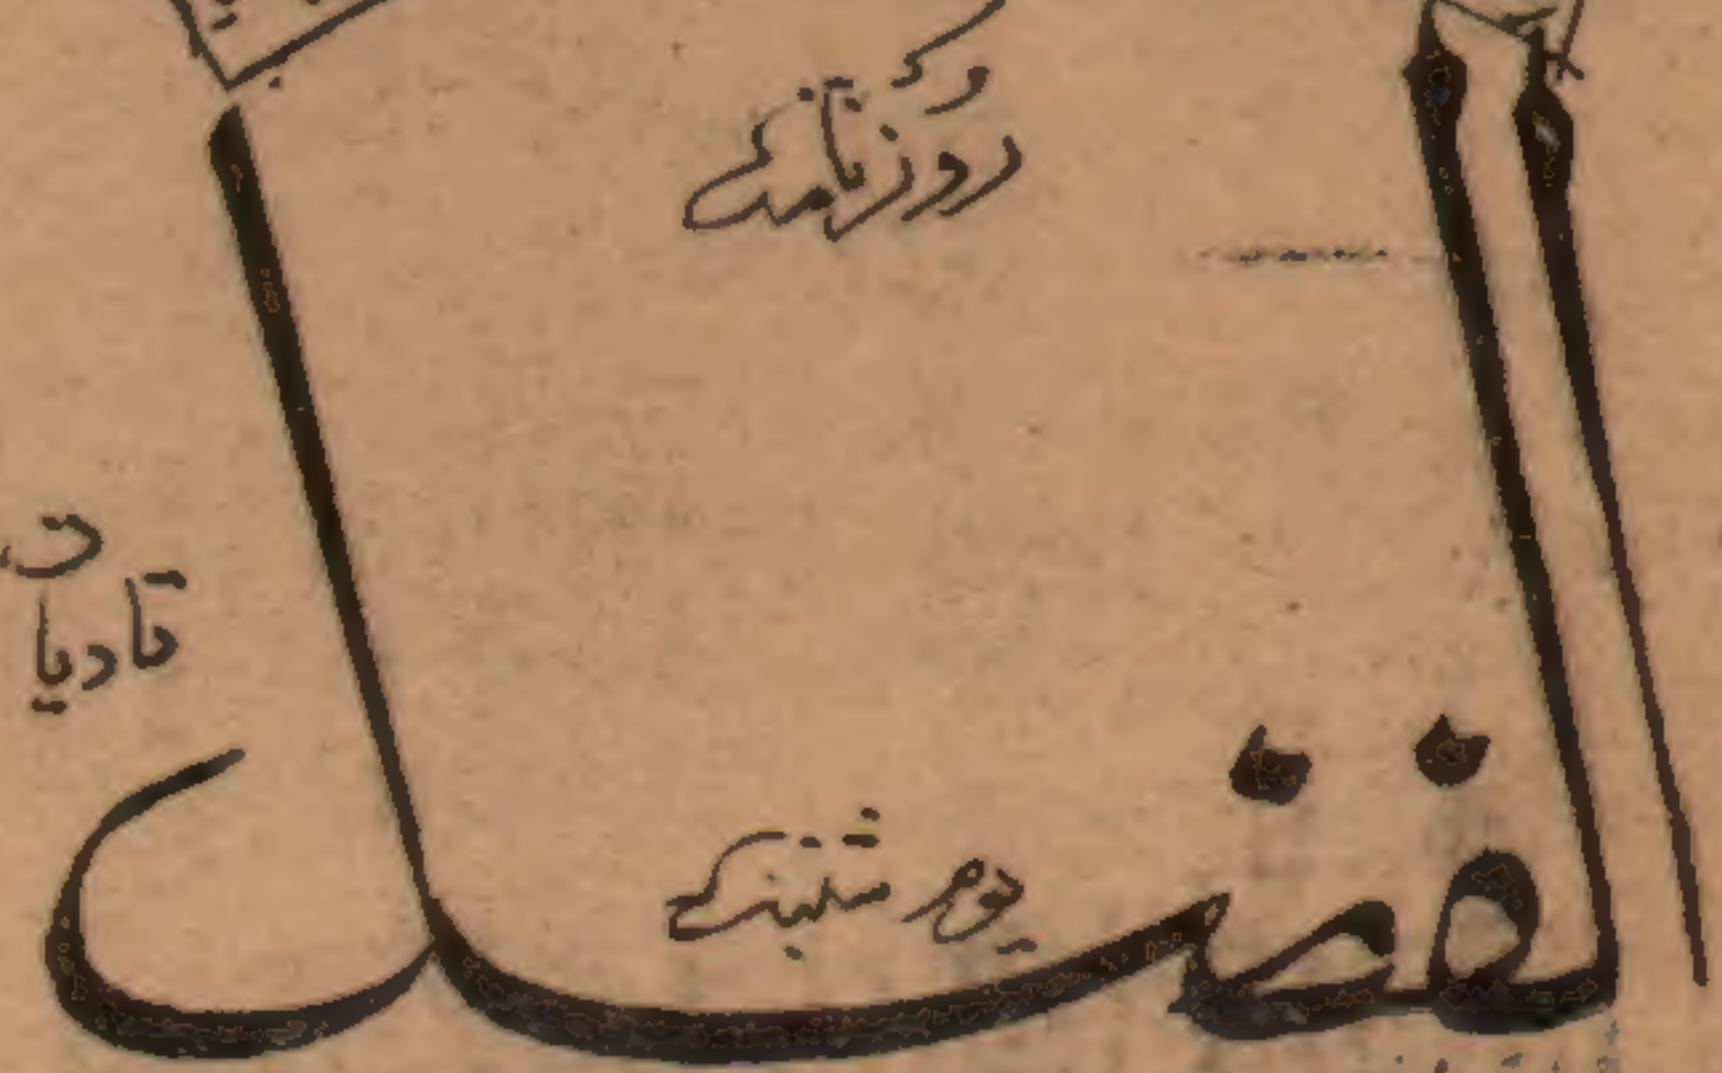 روزنامہ
الفضل
قادیان
یوم شنبہ